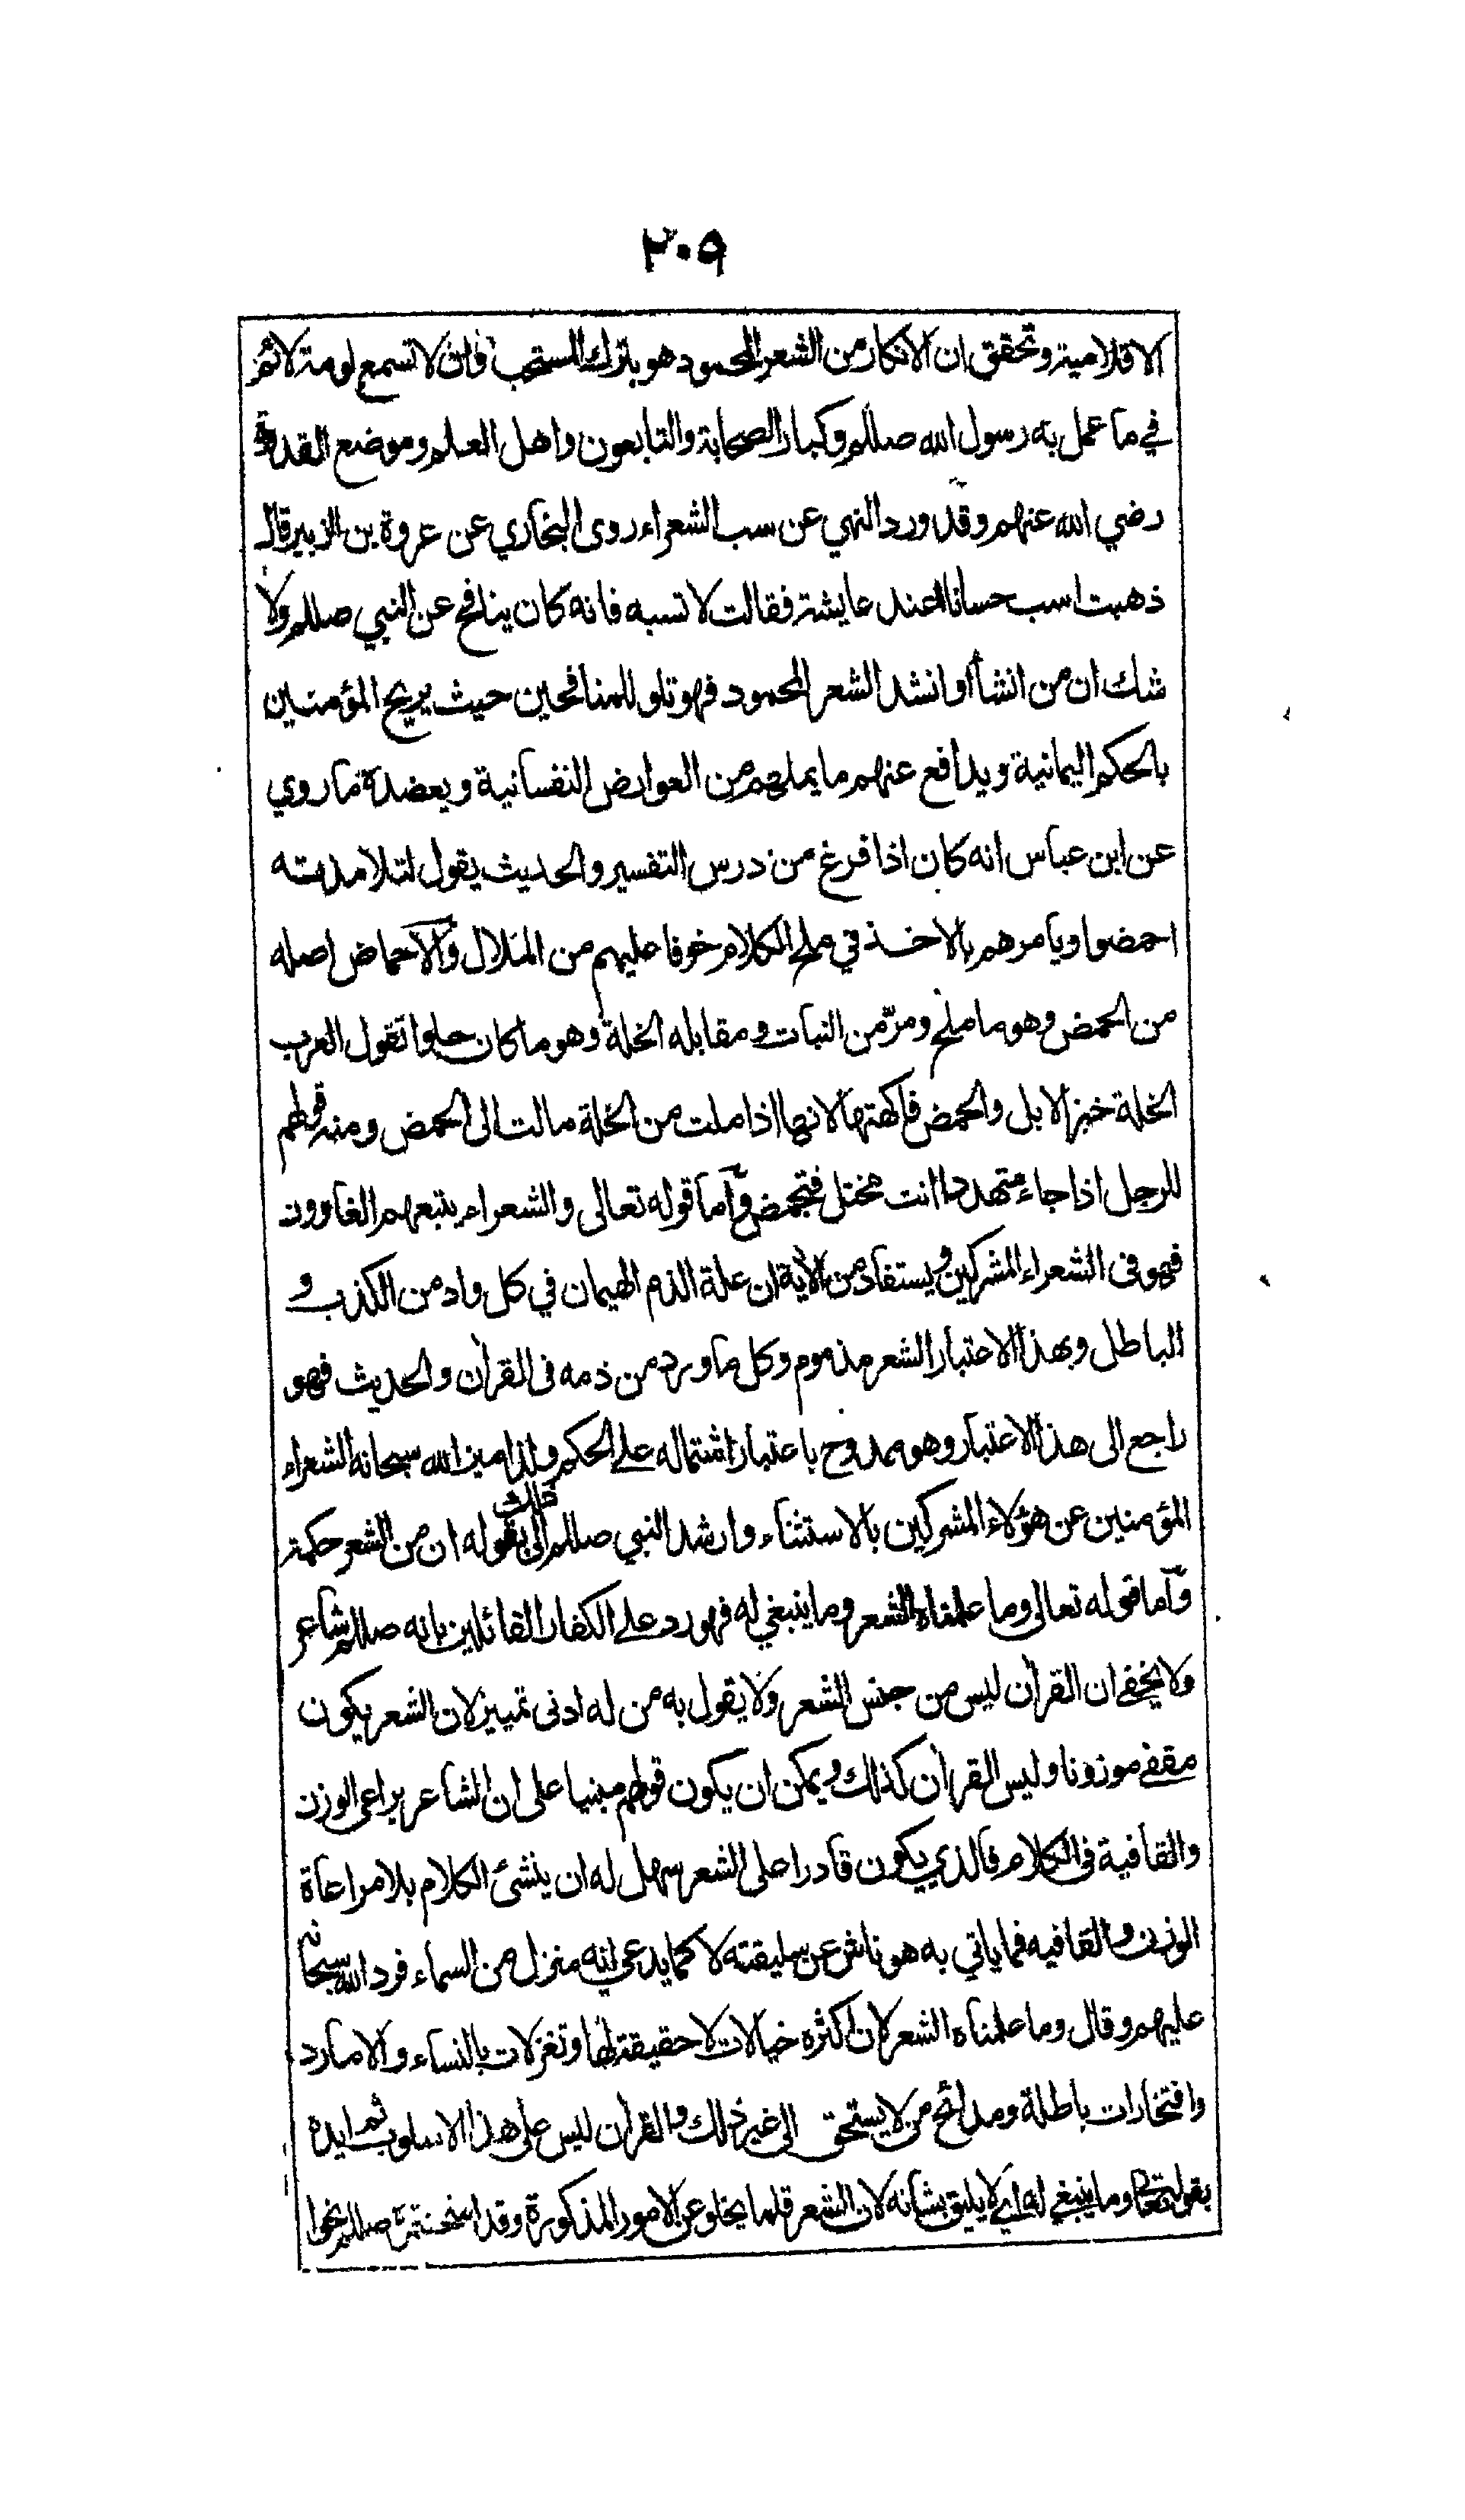 ٢٠٩
الاقلامية وتحقق ان الانكار من الشعر المحمود هو بترك المستحب فان لا تسمع لومة لائم
في ما عمل به رسول الله صللم وكبار الصحابة والتابعون واهل العلم وموضع القدوة
رضي الله عنهم وقد ورد النهي عن سب الشعراء روى البخاري عن عروة بن الزبير قال
ذهبت اسب حسانا عند عايشة فقالت لا تسبه فانه كان ينافح عن النبي صللم ولا
شك ان من انشأ او انشد الشعر المحمود فهو تلو للمنافحين حيث يريح المؤمنين
بالحكم اليمانية ويدافع عنهم ما يملهم من العوارض النفسانية ويعضدة ما روي
عن ابن عباس انه كان اذا فرغ من درس التفسير والحديث يقول لتلامذته
احمضوا ويامرهم بالاخذ في ملح الكلام خوفا عليهم من الملال والاحماض اصله
من الحمض وهو ما ملح ومرّ من النبات ومقابله الخلة وهو ما كان حلوا تقول العرب
الخلة خبز الابل والحمض فاكهتها لانها اذا ملت من الخلة مالت الى الحمض ومنه قولهم
للرجل اذا جاء متهددا انت مختل فتحمض وآما قوله تعالى والشعراء يتبعهم الغاوون
فهو فى الشعراء المشركين ويستفاد من الآية ان علة الذم الهيمان في كل واد من الكذب و
الباطل وبهذا الاعتبار الشعر مذموم وكل ما ورد من ذمه فى القرآن والحديث فهو
راجع الى هذا الاعتبار وهو ممدوح باعتبار اشتماله على الحكم ولذا ميز الله سبحانه الشعراء
المؤمنين عن هؤلاء المشركين بالاستثناء وارشد النبي صللم الى ذلك بقوله ان من الشعر حكمة
وآما قوله تعالى وما علمناه الشعر وما ينبغي له فهو رد على الكفار القائلين بانه صللم شاعر
ولا يخفى ان القرآن ليس من جنس الشعر ولا يقول به من له ادنى تمييز لان الشعر يكون
مقفے موزونا وليس القرآن كذلك ويمكن ان يكون قولهم مبنيا على ان الشاعر يراعى الوزن
والقافية فى الكلام فالذي يكون قادرا على الشعر سهل له ان ينشئ الكلام بلا مراعاة
الوزن والقافيه فما ياتي به هو ناش عن سليقته لا كما يدعي انه منزل من السماء فرد الله سبحانه
عليهم وقال وما علمناه الشعر لان اكثره خيالات لا حقيقة لها وتغزلات بالنساء والامارد
وافتخارات باطلة ومدائح من لا يستحق الى غير ذلك والقرآن ليس على هذا الاسلوب ثم ايده
بقوله تعالى وما ينبغي له اي لا يليق بشانه لان الشعر قلما يخلو عن الامور المذكورة وقد صللم نحوا